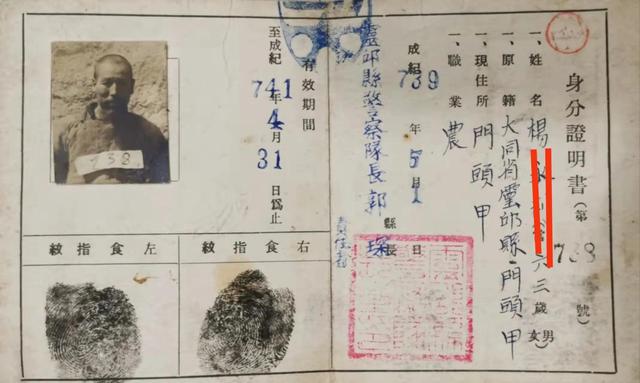 身分證明書(第 738 號)
一、姓名 楊 六三歲(男女)
一、原籍 大同省靈邱縣門頭甲
一、現住所 門頭甲
一、職業 農
成紀 739 年 5 月 1 日
縣長
靈邱縣警察隊長郭琛
責任者
有效期間
至成紀 741 年 4 月 31 日為止
738
右食指紋
左食指紋